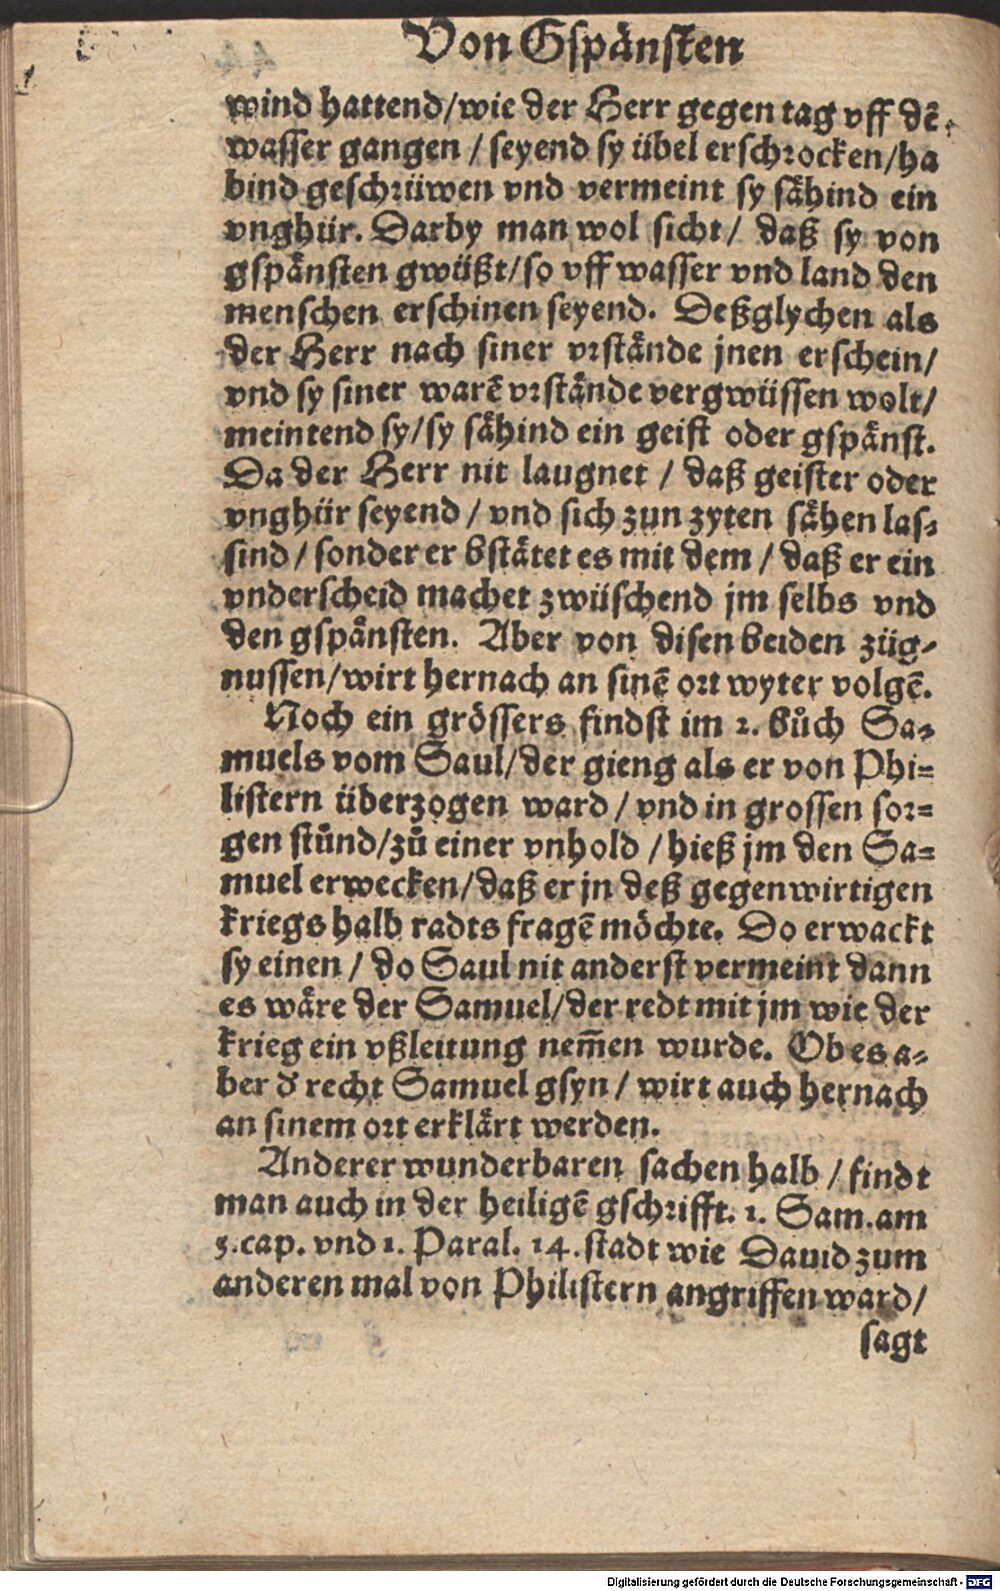 Von Gspänsten
wind hattend/wie der Herr gegen tag vff dē
wasser gangen / seyend sy übel erschrocken/ha
bind geschrüwen vnd vermeint sy sähind ein
vnghür. Darby man wol sicht/ daß sy von
gspänsten gwüßt/so vff wasser vnd land den
menschen erschinen seyend. Deßglychen als
der Herr nach siner vrstände jnen erschein/
vnd sy siner warē vrstände vergwüssen wolt/
meintend sy/sy sähind ein geist oder gspänst.
Da der Herr nit laugnet / daß geister oder
vnghür seyend / vnd sich zun zyten sähen las-
sind / sonder er bstätet es mit dem / daß er ein
vnderscheid machet zwüschend jm selbs vnd
den gspänsten. Aber von disen beiden züg-
nussen/wirt hernach an sinē ort wyter volgē.
Noch ein grössers findst im 1. bůch Sa-
muels vom Saul/der gieng als er von Phi-
listern überzogen ward / vnd in grossen sor-
gen stůnd/zů einer vnhold / hieß jm den Sa-
muel erwecken/daß er jn deß gegenwirtigen
kriegs halb radts fragē möchte. Do erwackt
sy einen / do Saul nit anderst vermeint dann
es wäre der Samuel/der redt mit jm wie der
krieg ein vßleitung nem̄en wurde. Ob es a-
ber d' recht Samuel gsyn / wirt auch hernach
an sinem ort erklärt werden.
Anderer wunderbaren sachen halb / findt
man auch in der heiligē gschrifft. 1. Sam. am
5. cap. vnd 1. Paral. 14. stadt wie Dauid zum
anderen mal von Philistern angriffen ward/
sagt
Digitalisierung gefördert durch die Deutsche Forschungsgemeinschaft - DFG